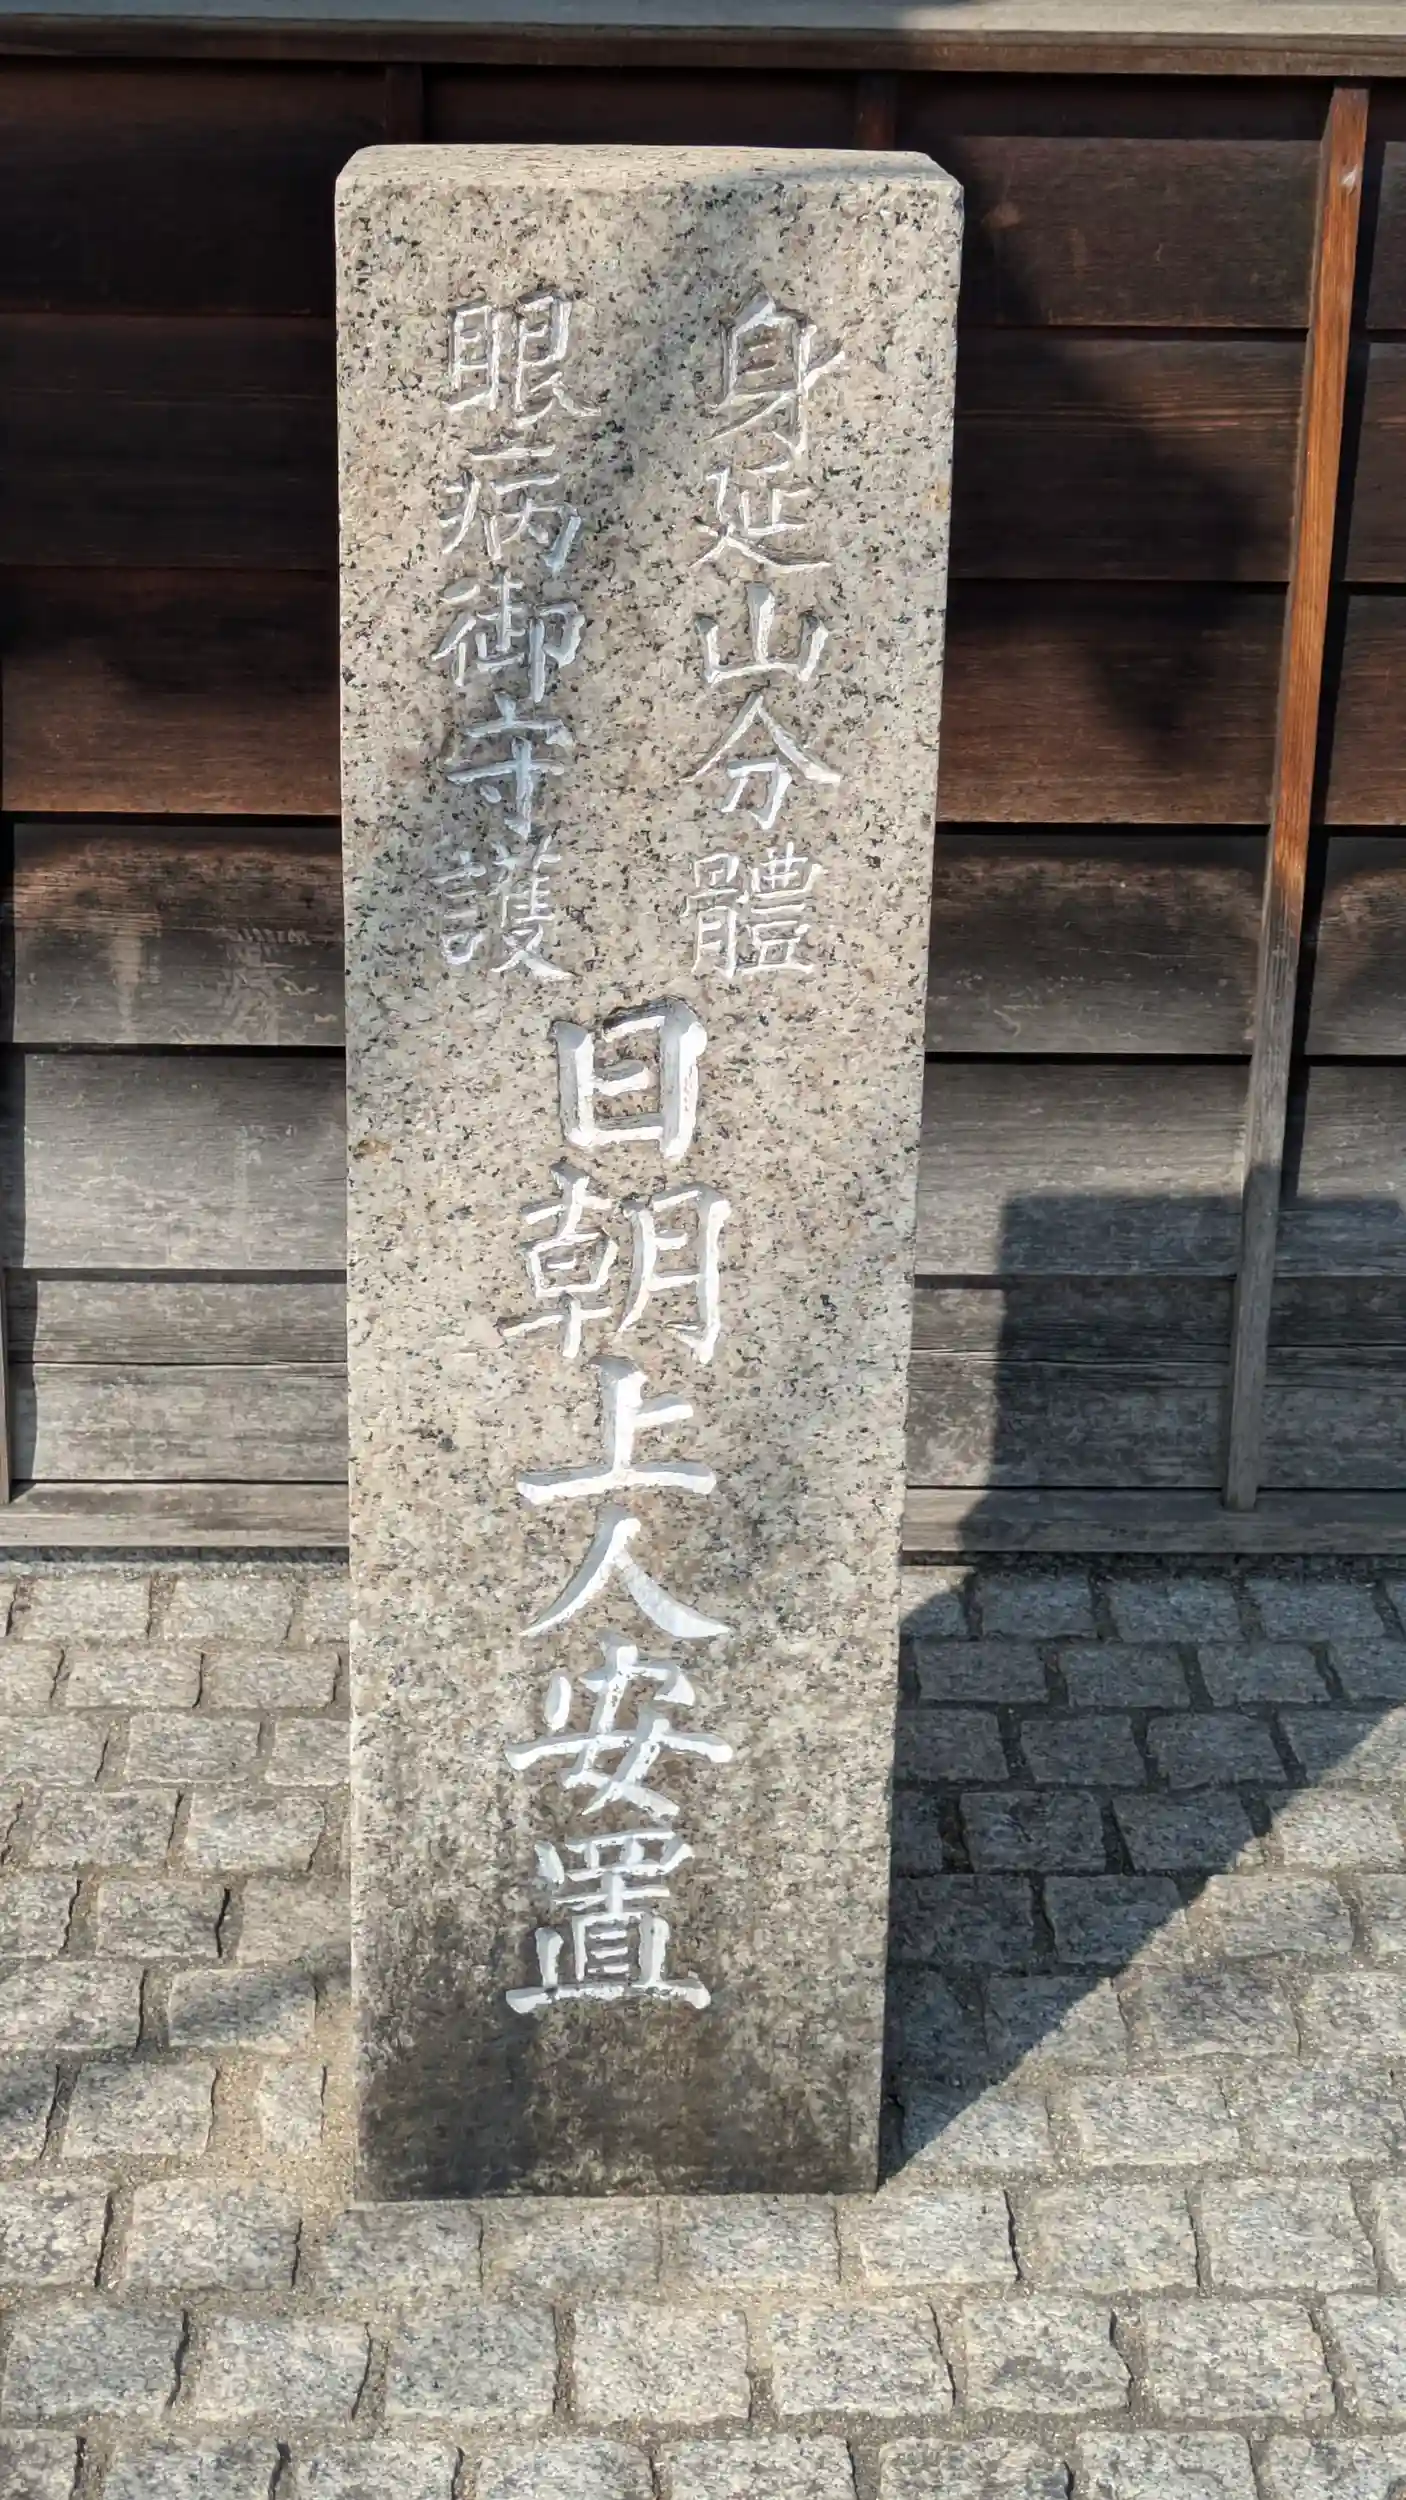 身延山分體
眼病御守護
日朝上人安置